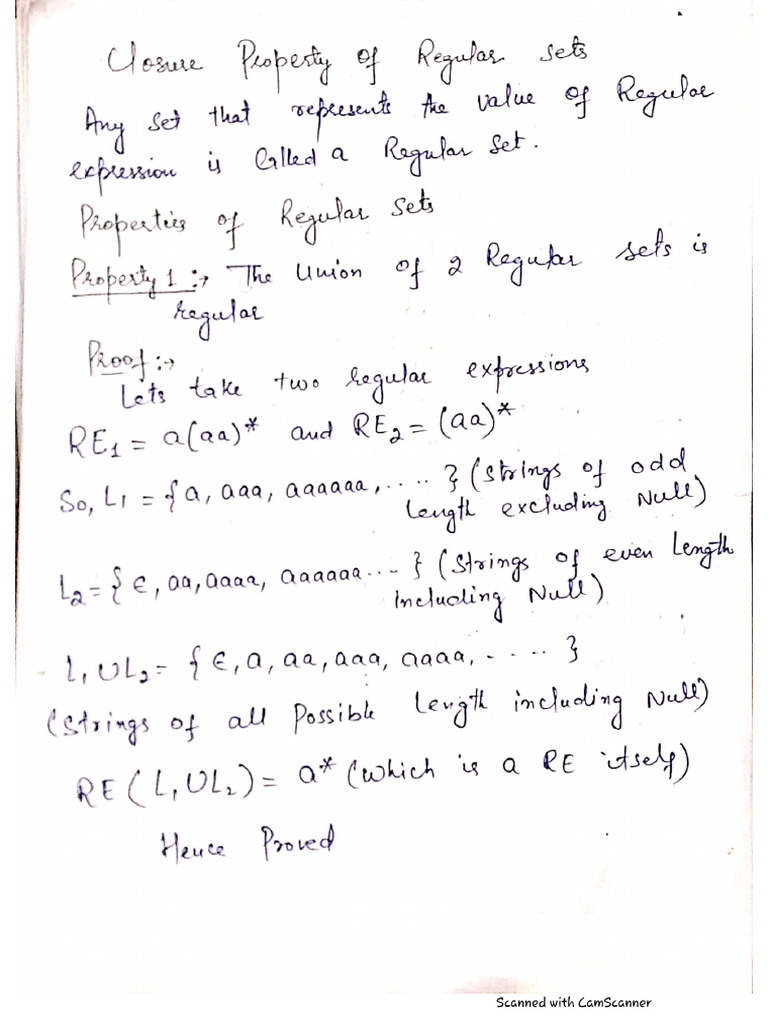 Closure Property of Regular sets
Any set that represents the value of Regular
expression is Called a Regular Set.
Properties of Regular Sets
Property 1 :→ The Union of 2 Regular sets is
regular
Proof :→
Lets take two regular expressions
RE₁ = a(aa)* and RE₂ = (aa)*
So, L₁ = {a, aaa, aaaaaa, ..... } (Strings of odd
length excluding Null)
L₂ = { ϵ, aa, aaaa, aaaaaa... } (Strings of even Length
including Null)
L₁ ∪ L₂ = { ϵ, a, aa, aaa, aaaa, ..... }
(Strings of all Possible Length including Null)
RE (L₁ ∪ L₂) = a* (which is a RE itself)
Hence Proved
Scanned with CamScanner